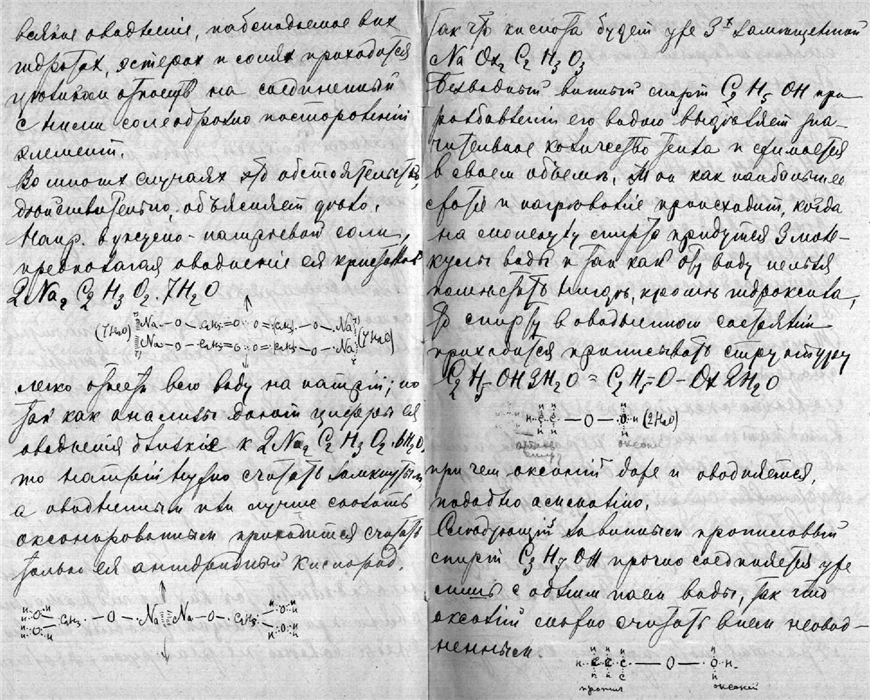 явления оводнения, наблюдаемое в их
гидратах, эстерах и солях приходится
целиком отнести на соединенный
с ними солеобразно посторонний
элемент.
Во многих случаях это обстоятельство,
действительно, объясняет дело.
Напр. в уксусно-натриевой соли,
предполагая оводнение ея кристаллов
2Na₂ C₂ H₃ O₂. 7H₂O
(7H₂O) Na – O – C₂H₃ = O O = C₂H₃ – O – Na (7H₂O)
Na – O – C₂H₃ = O O = C₂H₃ – O – Na
легко отнести всю воду на натрий; но
так как анализы дают цифры ея
оводнения близкие к 2Na₂ C₂ H₃ O₂ 6H₂O,
то натрий нужно считать замкнутым
а оводненным или лучше сказать
оксонированным приходится считать
только ея ангидридный кислород.
H H O H H C₂H₃ – O – Na Na – O – C₂H₃ H O H
H O H H O H
Так что кислота будет уже 3х замещенной
Na Ox₂ C₂ H₃ O₃
Безводный винный спирт C₂ H₅ OH при
разбавлении его водою выделяет зна-
чительное количество тепла и сжимается
в своем объеме, при как наибольшее
сжатие и нагревание происходит, когда
на молекулу спирта придутся 3 моле-
кулы воды и так как эту воду нельзя
поместить нигде, кроме гидроксила,
то спирту в оводненном состоянии
приходится приписывать структуру
C₂ H₅ OH 3H₂O = C₂ H₅ – O – Ox 2H₂O
C C – O – O H (2H₂O)
оксоний
при чем оксоний даже и оводняется,
подобно аммонию.
Следующий за винным пропиловый
спирт C₃ H₇ OH прочно соединяется уже
лишь с одним паем воды, так что
оксоний можно считать в нем неовод-
ненным.
H H H
H C C C – O – O H
H H H
пропил оксоний